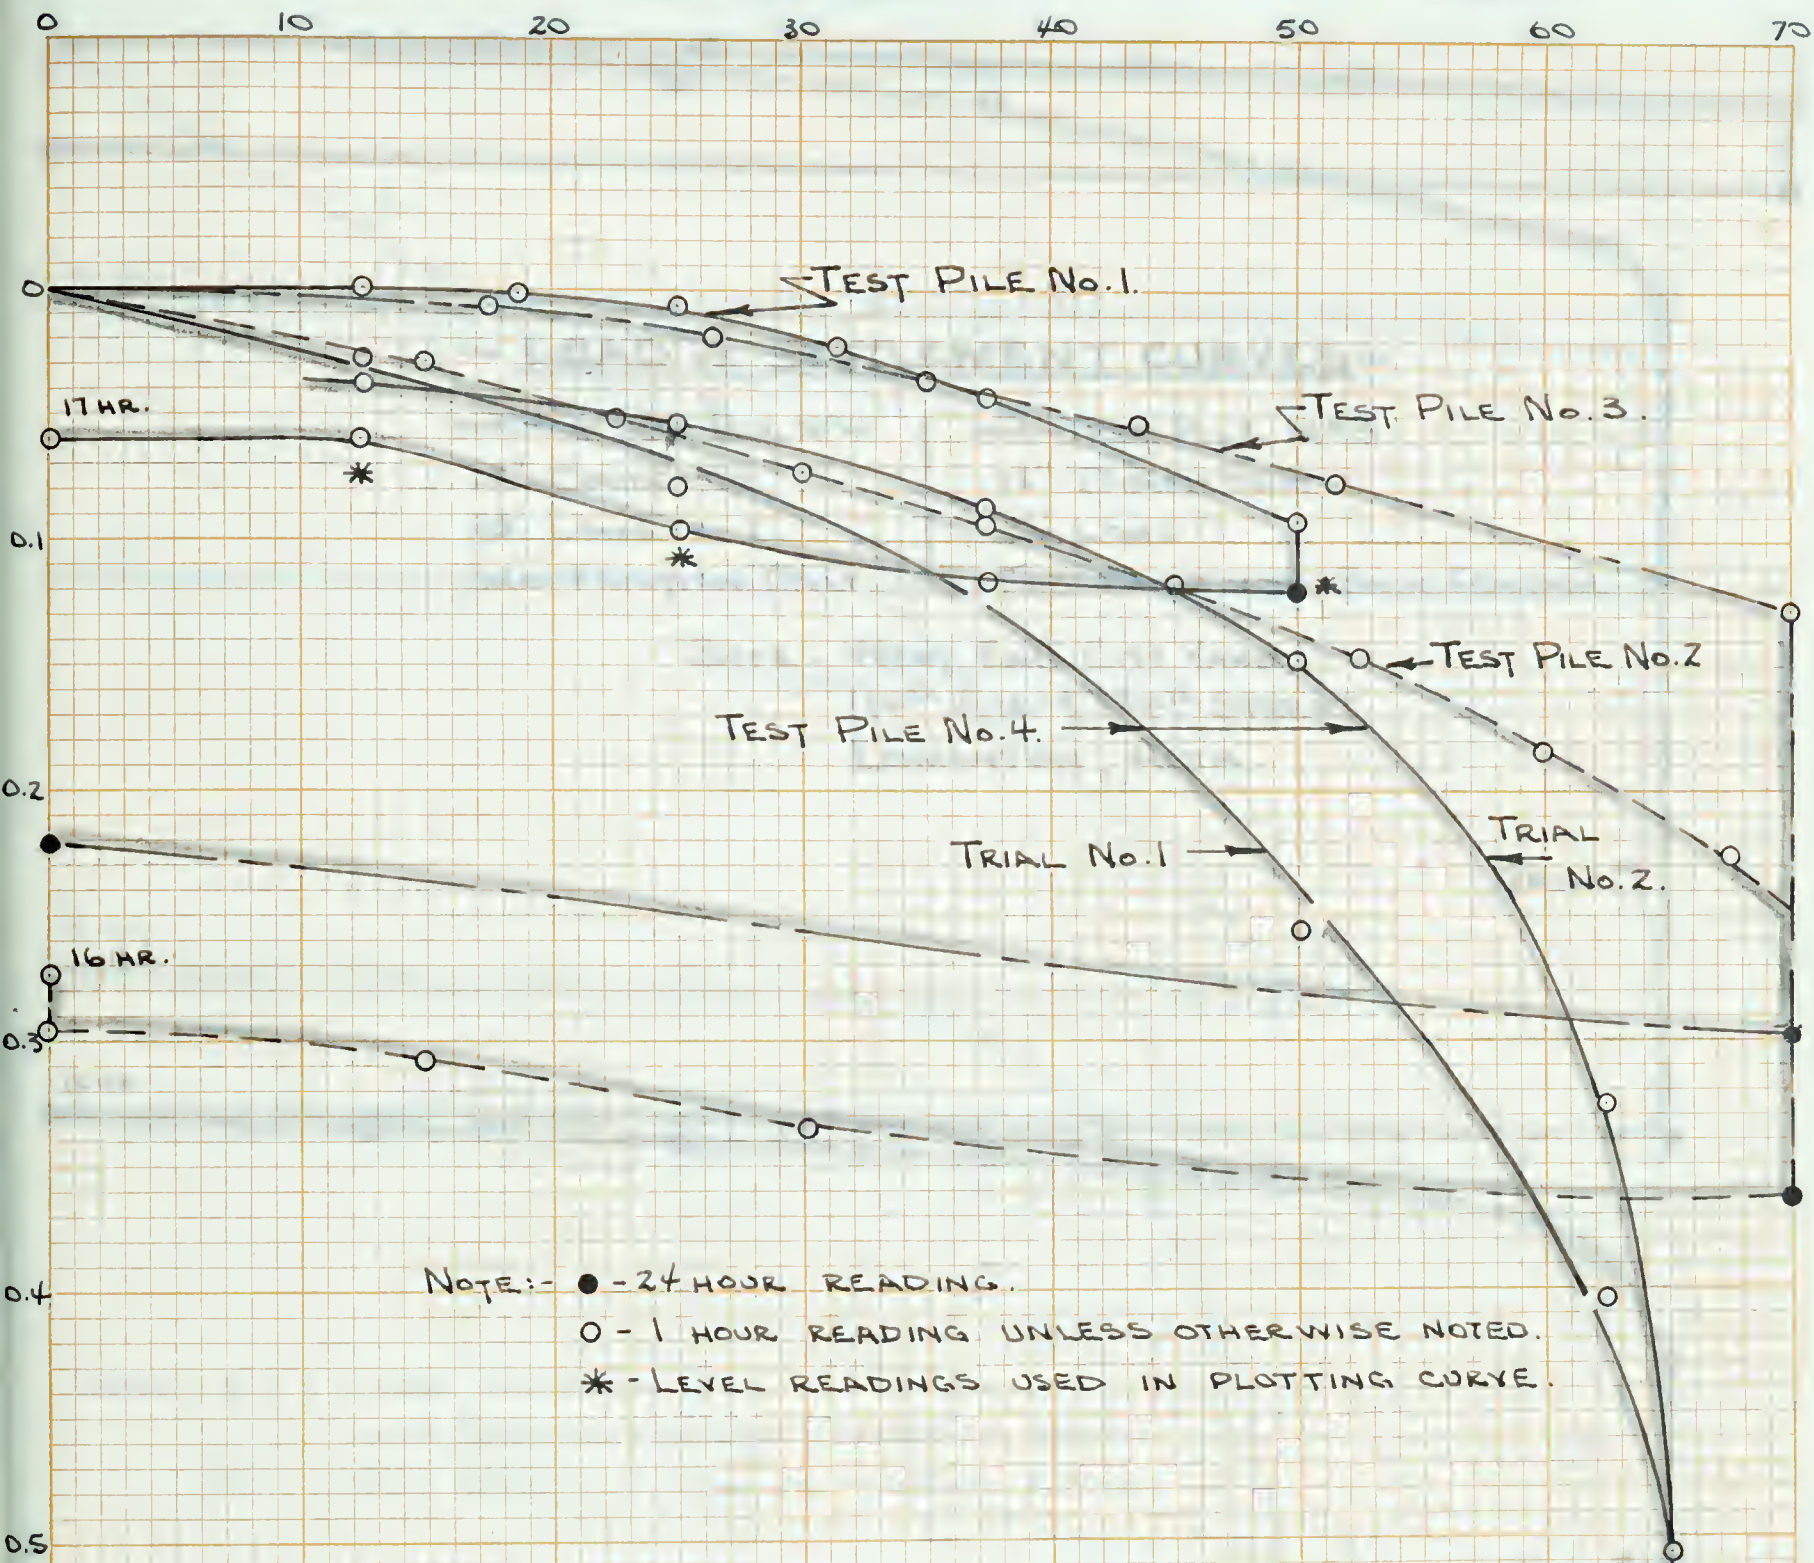 0 10 20 30 40 50 60 70
TEST PILE No.1.
0
TEST PILE No.3.
17 HR.
0.1
TEST PILE No.2
TEST PILE No.4.
0.2
TRIAL No.1
TRIAL
No.2.
16 HR.
0.3
NOTE:- ● - 24 HOUR READING.
0.4
O - 1 HOUR READING UNLESS OTHERWISE NOTED.
* - LEVEL READINGS USED IN PLOTTING CURVE.
0.5